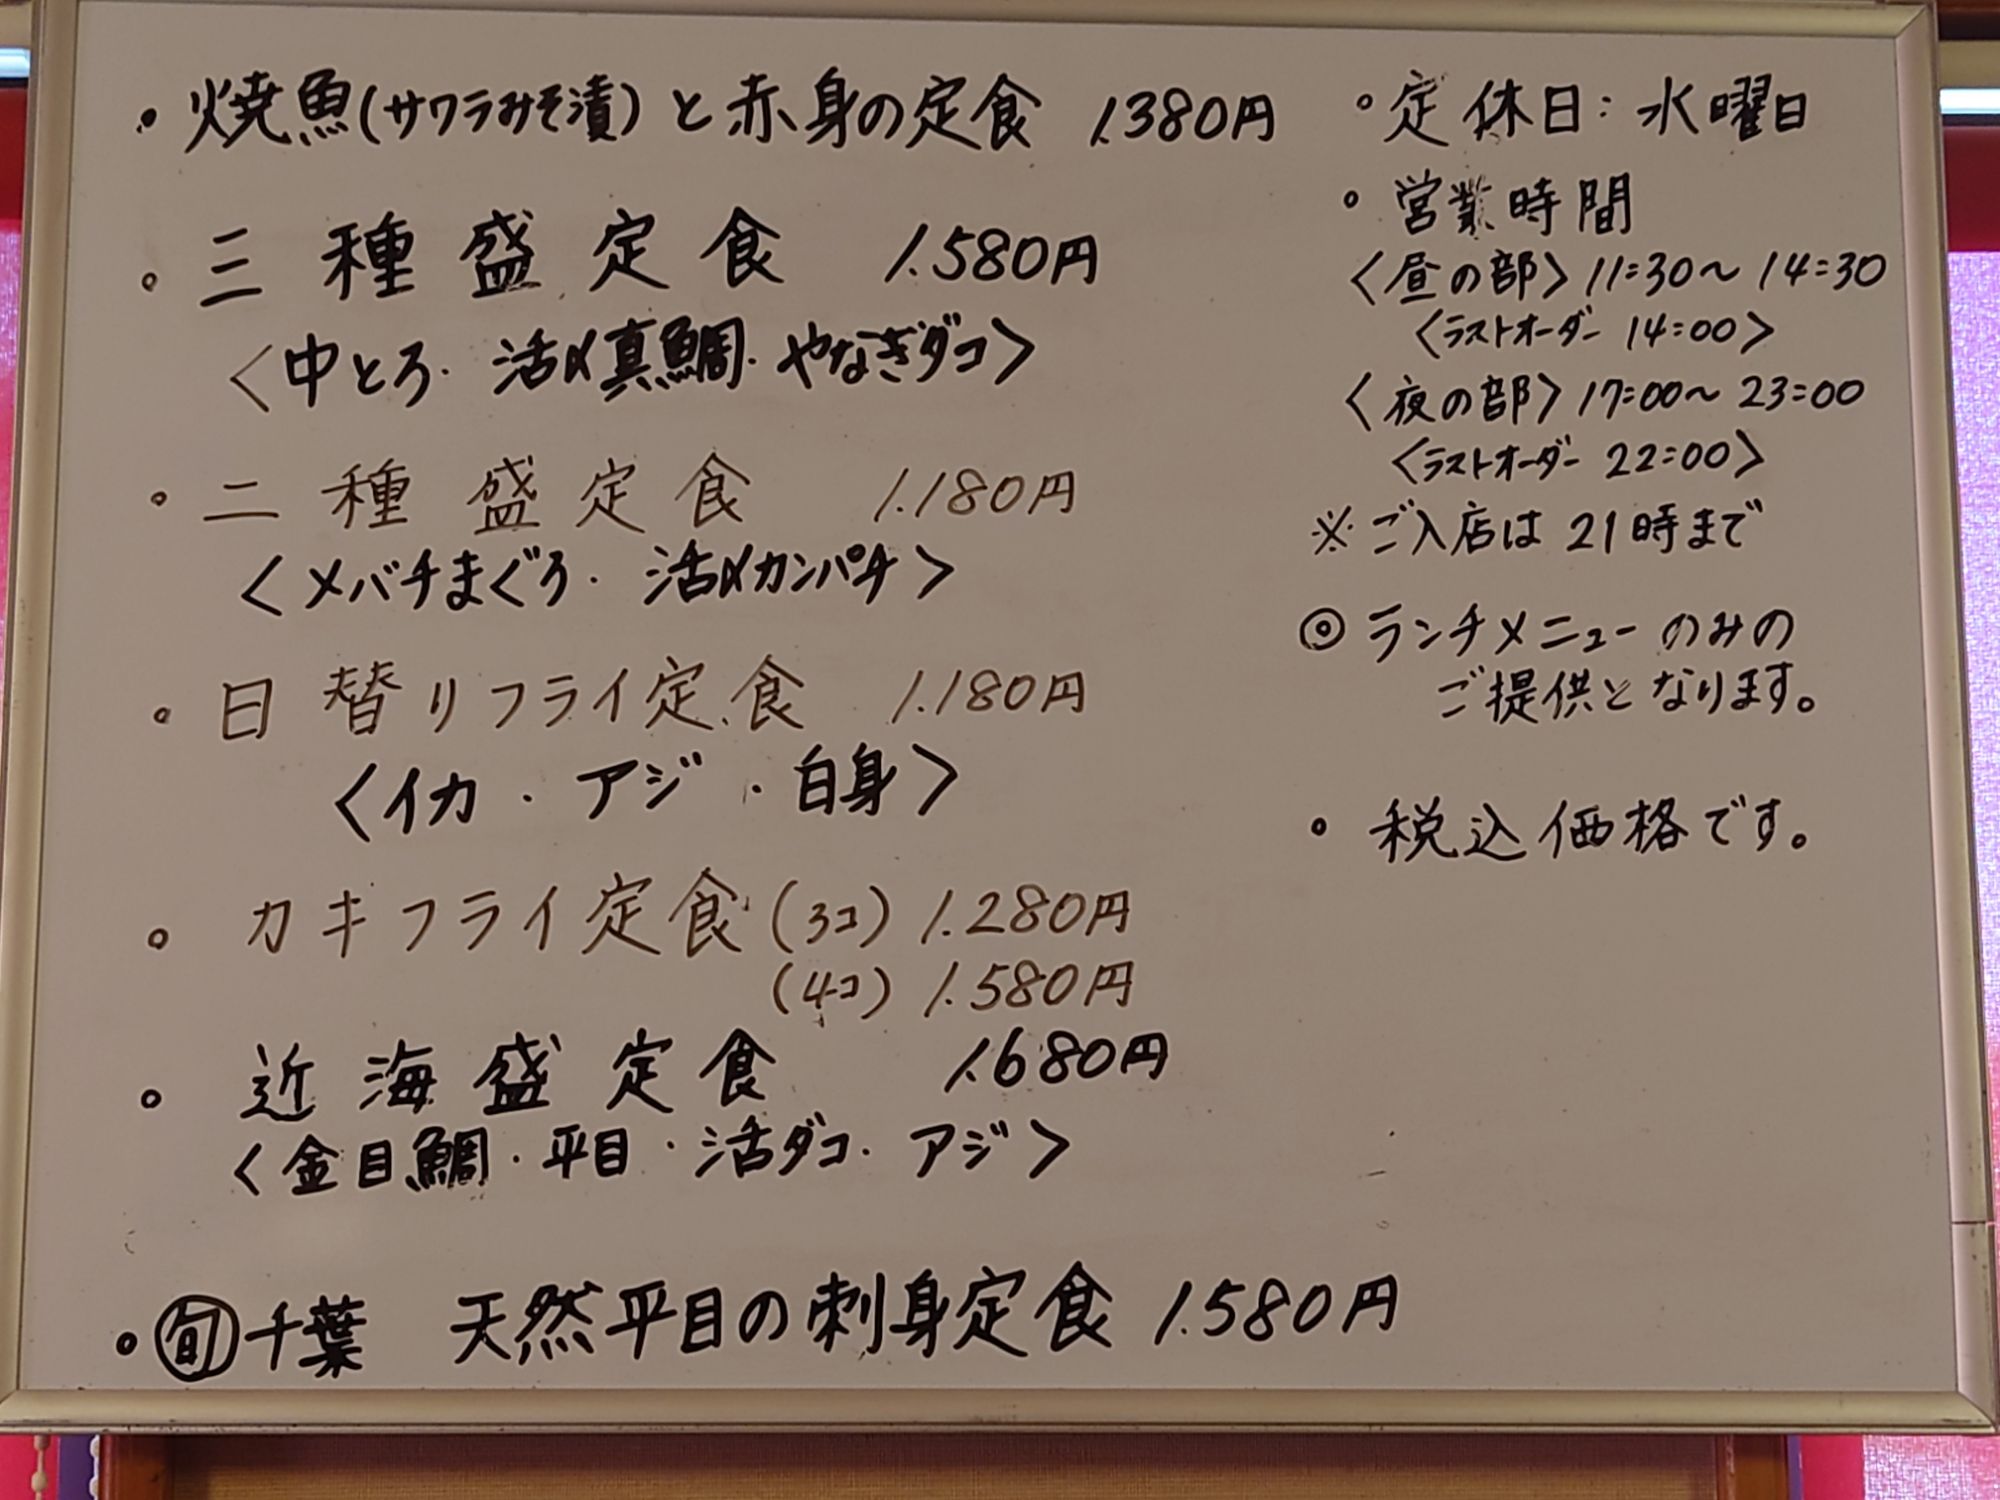 ・焼魚(サワラみそ漬)と赤身の定食 1.380円
・三種盛定食 1.580円
〈中とろ・活〆真鯛・やなぎダコ〉
・二種盛定食 1.180円
〈メバチまぐろ・活〆カンパチ〉
・日替りフライ定食 1.180円
〈イカ・アジ・白身〉
・カキフライ定食(3コ) 1.280円
(4コ) 1.580円
・近海盛定食 1.680円
〈金目鯛・平目・活ダコ・アジ〉
・㊬千葉 天然平目の刺身定食 1.580円
・定休日:水曜日
・営業時間
〈昼の部〉11:30〜14:30
〈ラストオーダー 14:00〉
〈夜の部〉17:00〜23:00
〈ラストオーダー 22:00〉
※ご入店は21時まで
◎ランチメニューのみの
ご提供となります。
・税込価格です。